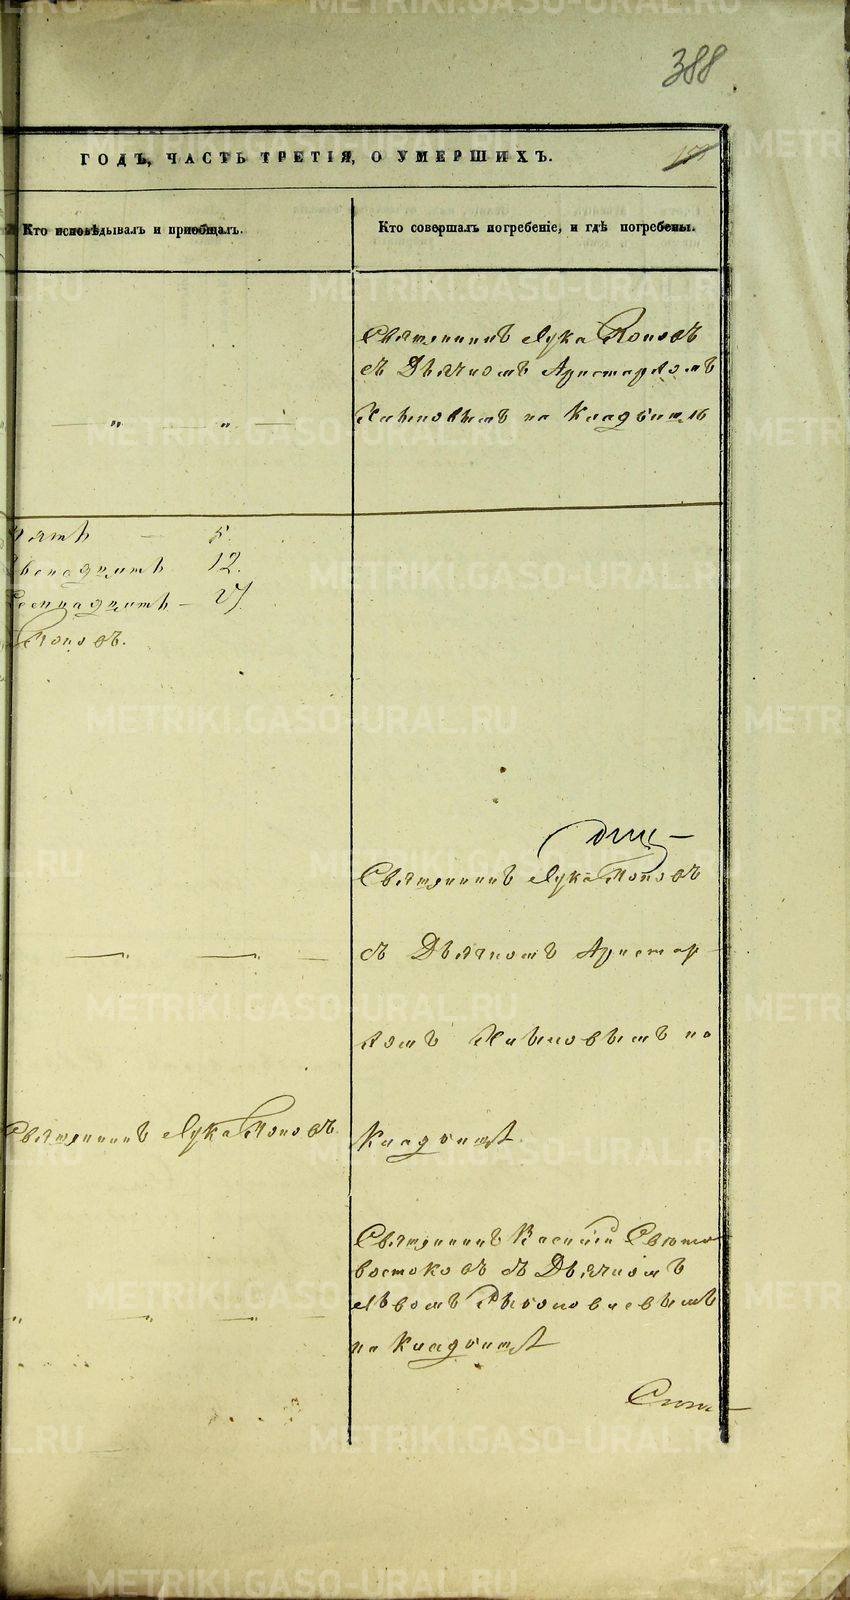 388
ГОДЪ, ЧАСТЬ ТРЕТІЯ, О УМЕРШИХЪ.
Кто исповѣдывалъ и пріобщалъ.
Кто совершалъ погребеніе, и гдѣ погребены.
Священникъ Лука Поповъ
съ Дьячкомъ Аристархомъ
на Кладбищѣ
" "
пять — 5.
двенадцать 12.
Поповъ.
Священникъ Лука Поповъ
съ Дьячкомъ Аристар-
хомъ на
Священникъ Лука Поповъ.
Кладбищѣ.
Священникъ Василій Свѣто
востоковъ съ Дьячкомъ
Львомъ
на Кладбищѣ
METRIKI.GASO-URAL.RU